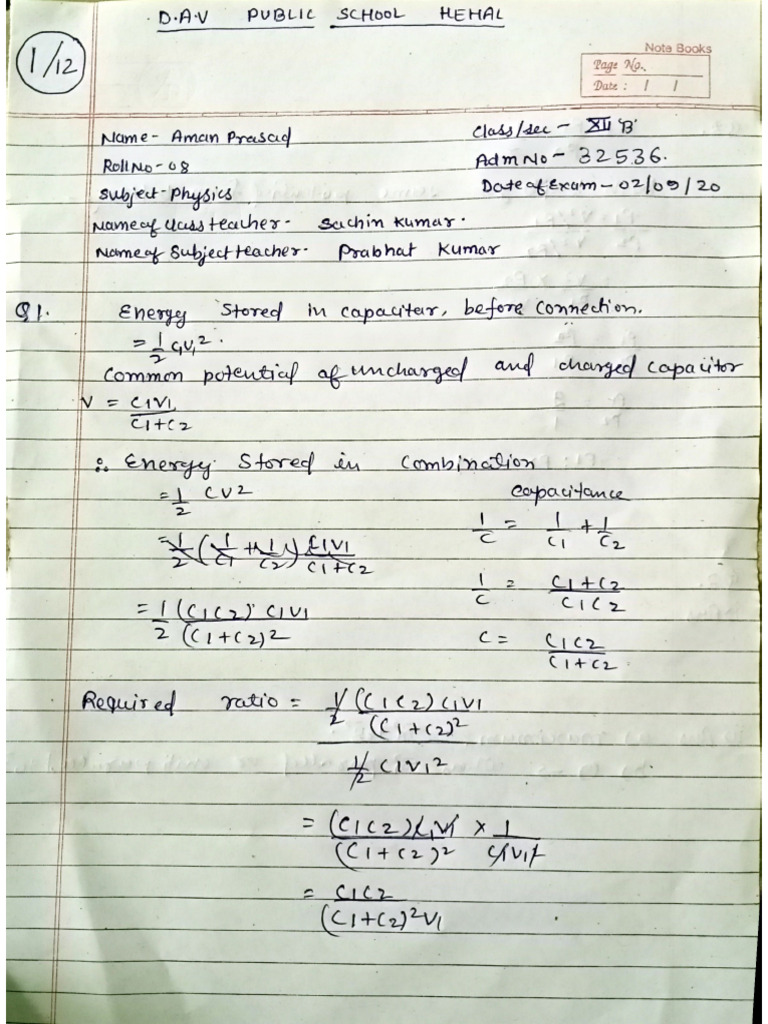 D.A.V PUBLIC SCHOOL HEHAL
1/12
Note Books
Page No.
Date : / /
Name - Aman Prasad
Class/sec - XII 'B'
Roll No - 08
Adm No - 32536.
Subject - Physics
Date of Exam - 02/09/20
Name of Class teacher - Sachin Kumar.
Name of Subject teacher - Prabhat Kumar
Q1. Energy Stored in capacitor, before connection.
= 1/2 C1V1².
Common potential of uncharged and charged capacitor
V = C1V1/(C1+C2)
∴ Energy Stored in Combination
= 1/2 CV²
= 1/2 (1/C1 + 1/C2) C1V1/(C1+C2)
= 1/2 (C1C2) C1V1/(C1+C2)2
Capacitance
1/C = 1/C1 + 1/C2
1/C = (C1+C2)/C1C2
C = C1C2/(C1+C2)
Required ratio = 1/2 (C1C2) C1V1/(C1+C2)²
1/2 C1V1²
= (C1C2) C1V1/(C1+C2)² × 1/C1V1²
= C1C2/(C1+C2)²V1